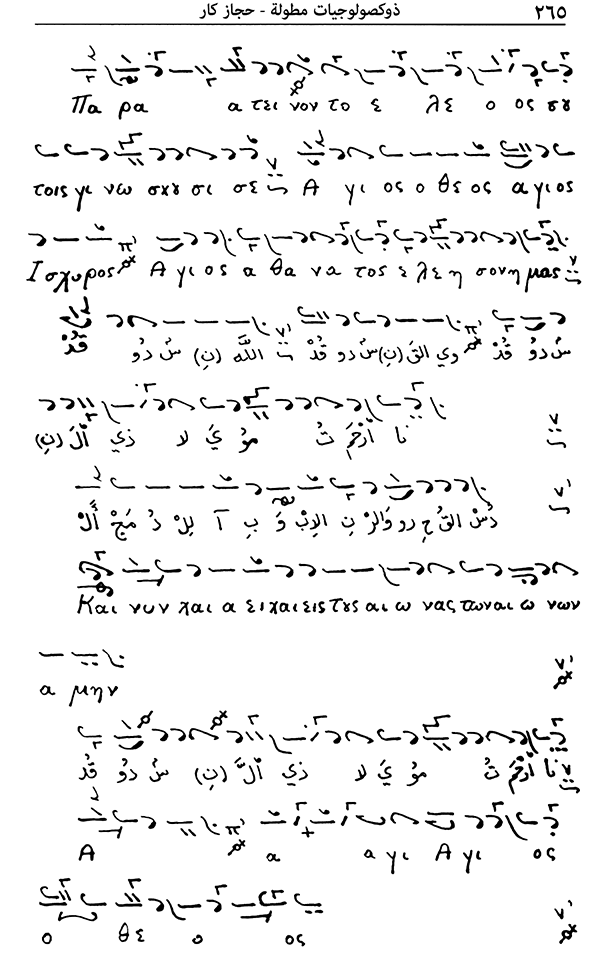 ٢٦٥ ذوكصولوجيات مطولة - حجاز كار
Πα ρα α τει νον το ε λε ο ος σου
τοις γι νω σκου σι σε Α γι ος ο θε ος α γιος
Ι σχυρος Α γι ος α θα να τος ε λε η σον η μας
سْ دو قُدْ وي القَ (نِ) سْ دو قُدْ اللّه (نِ) سْ دو قُدْ
نا أرْحَمَ تُ مو يَ لا ذي ألَ (نِ)
دُسْ القُ حِ رو وَالرْ نِ الإبْ وَ بِ آ لِلْ دُ مَجْ ألْ
Και νυν και α ει και εις τους αι ω νας των αι ω νων
α μην
نا أرْحَمَ تُ مو يَ لا ذي ألَّ (نِ) سْ دو قُدْ
Α α α γι Α γι ος
ο θε ο ος